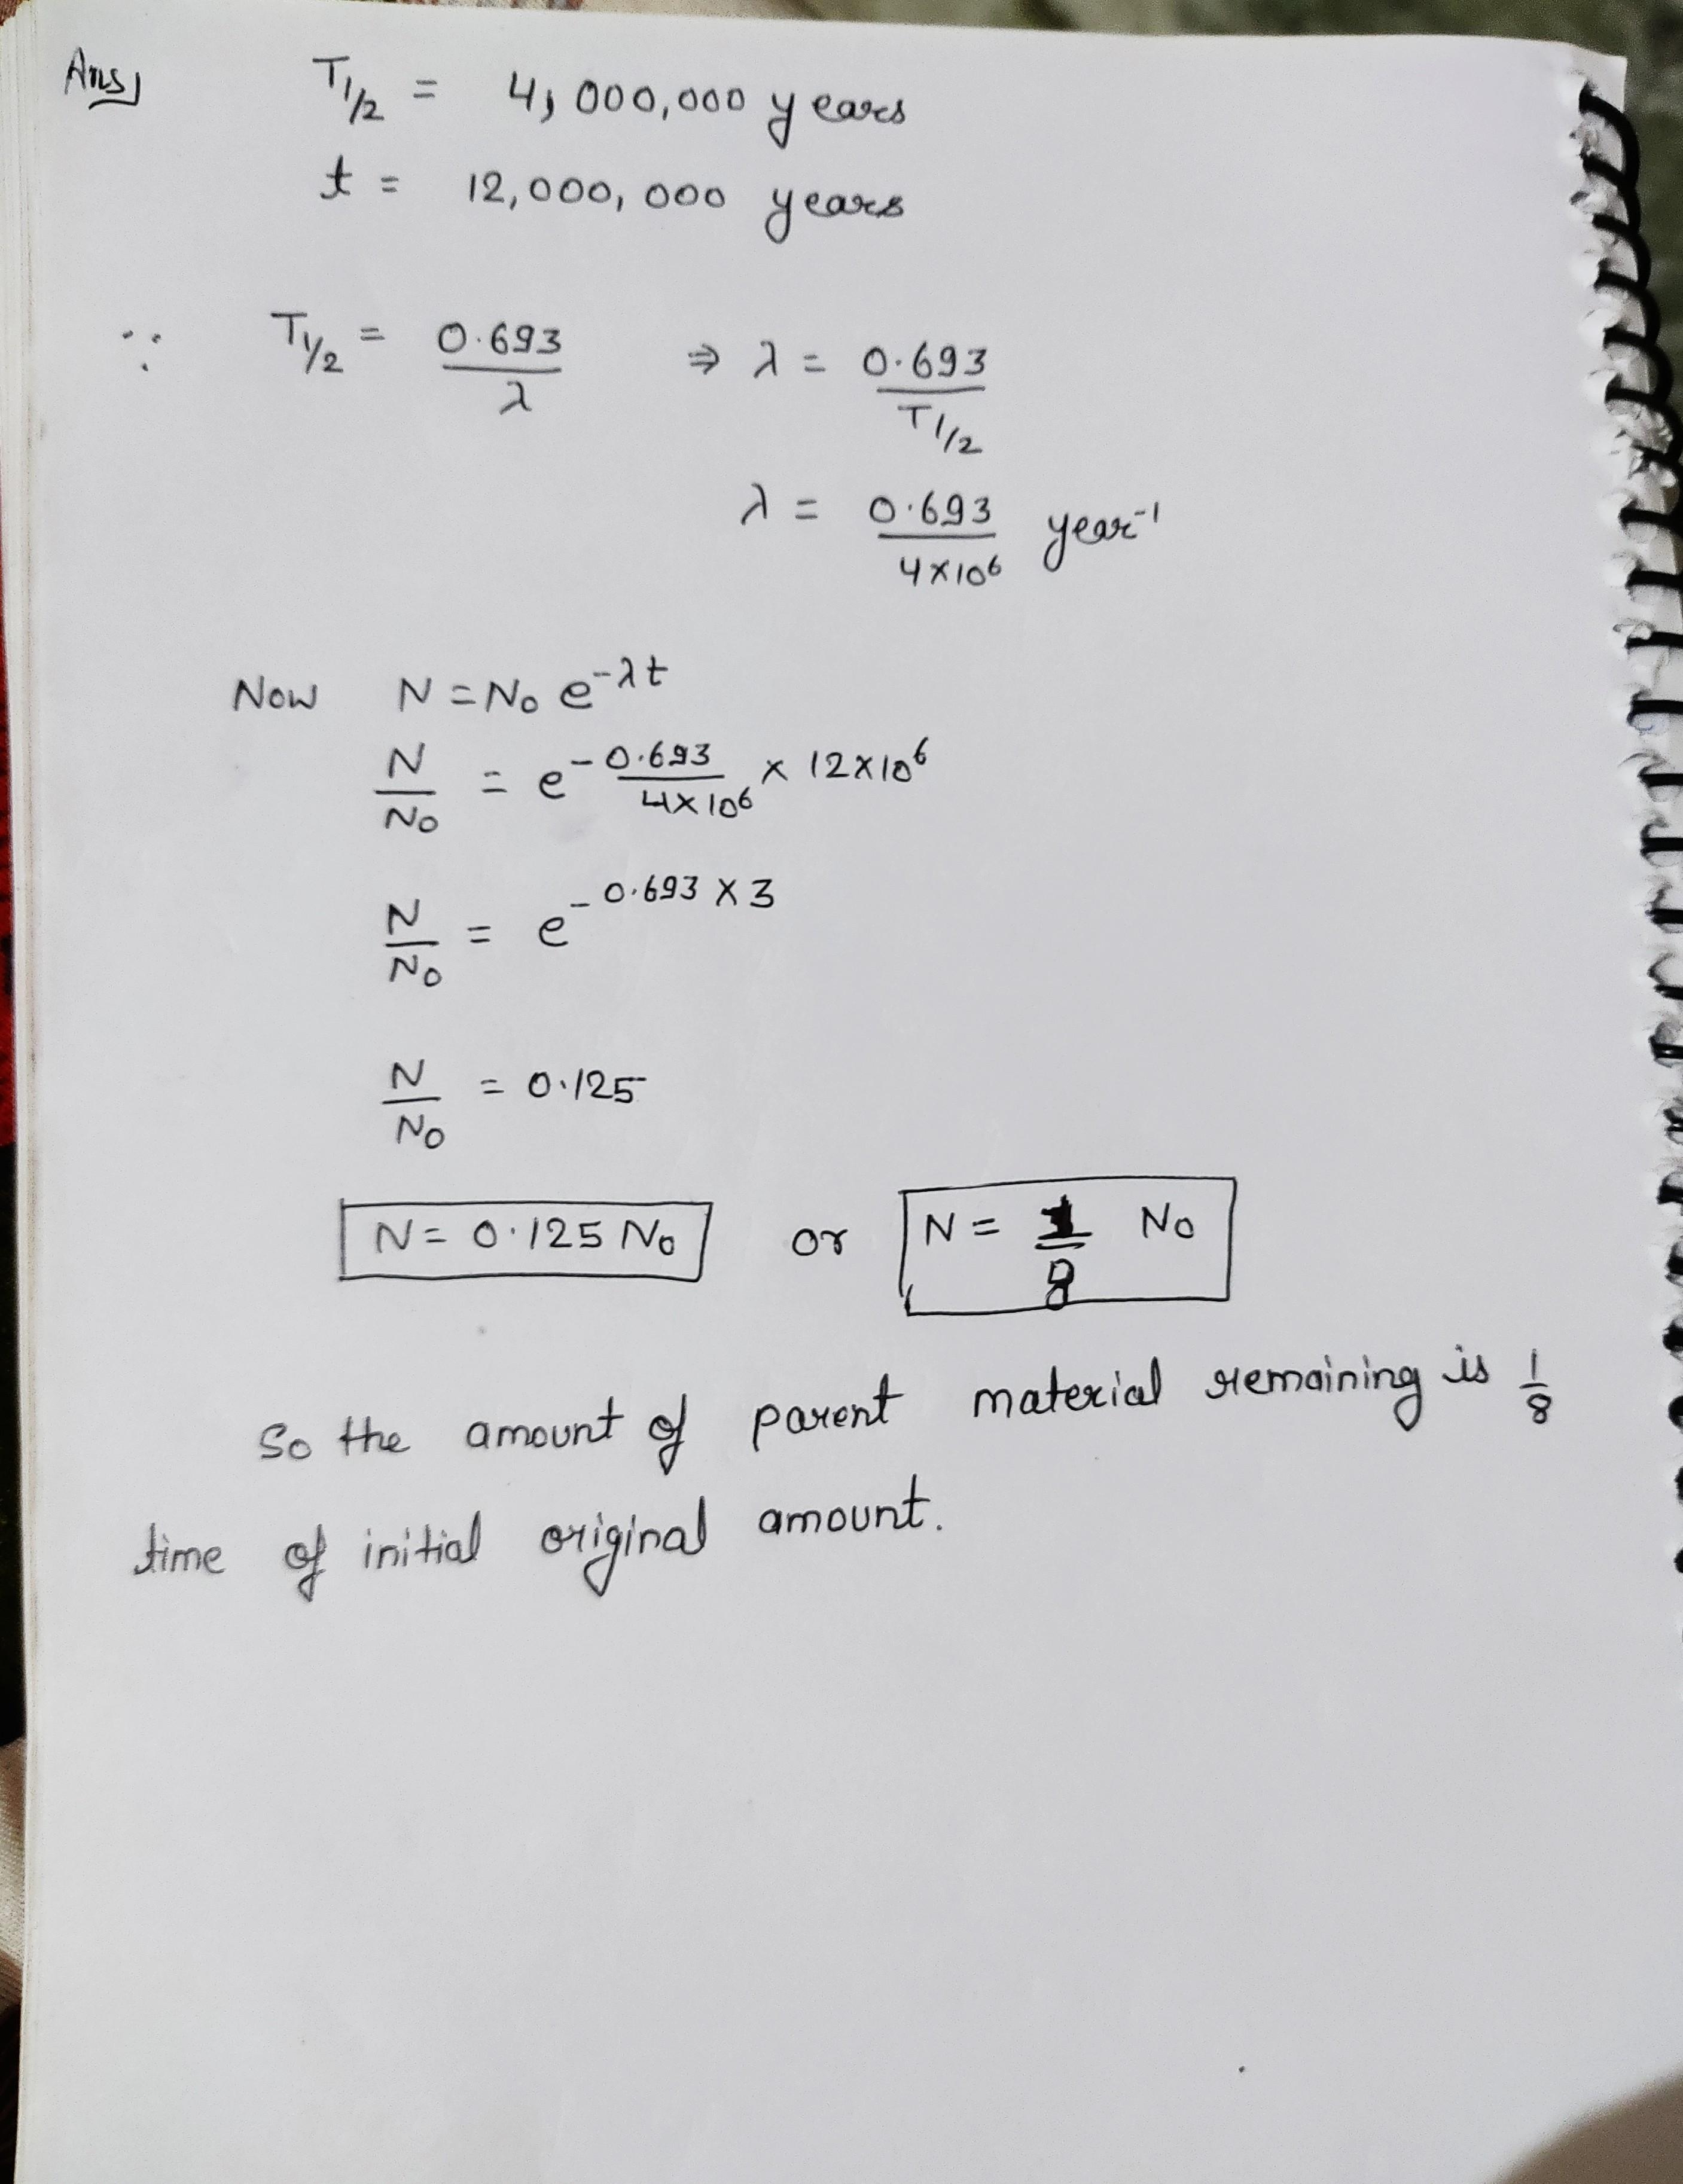 Ans) T1/2 = 4,000,000 years
t = 12,000,000 years
∵ T1/2 = 0.693/λ ⇒ λ = 0.693/T1/2
λ = 0.693/4×10⁶ year⁻¹
Now N = N₀ e^-λt
N/N₀ = e^-0.693/4×10⁶ × 12×10⁶
N/N₀ = e^-0.693×3
N/N₀ = 0.125
N = 0.125 N₀ or N = 1/8 N₀
So the amount of parent material remaining is 1/8
time of initial original amount.